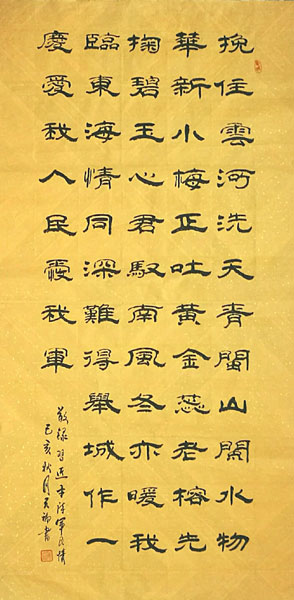 挽住雲河洗天青閩山閩水物
華新小梅正吐黃金蕊老榕先
掬碧玉心君馭南風冬亦暖我
臨東海情同深難得舉城作一
慶愛我人民愛我軍
敬録習近平詩軍民情
己亥秋月書